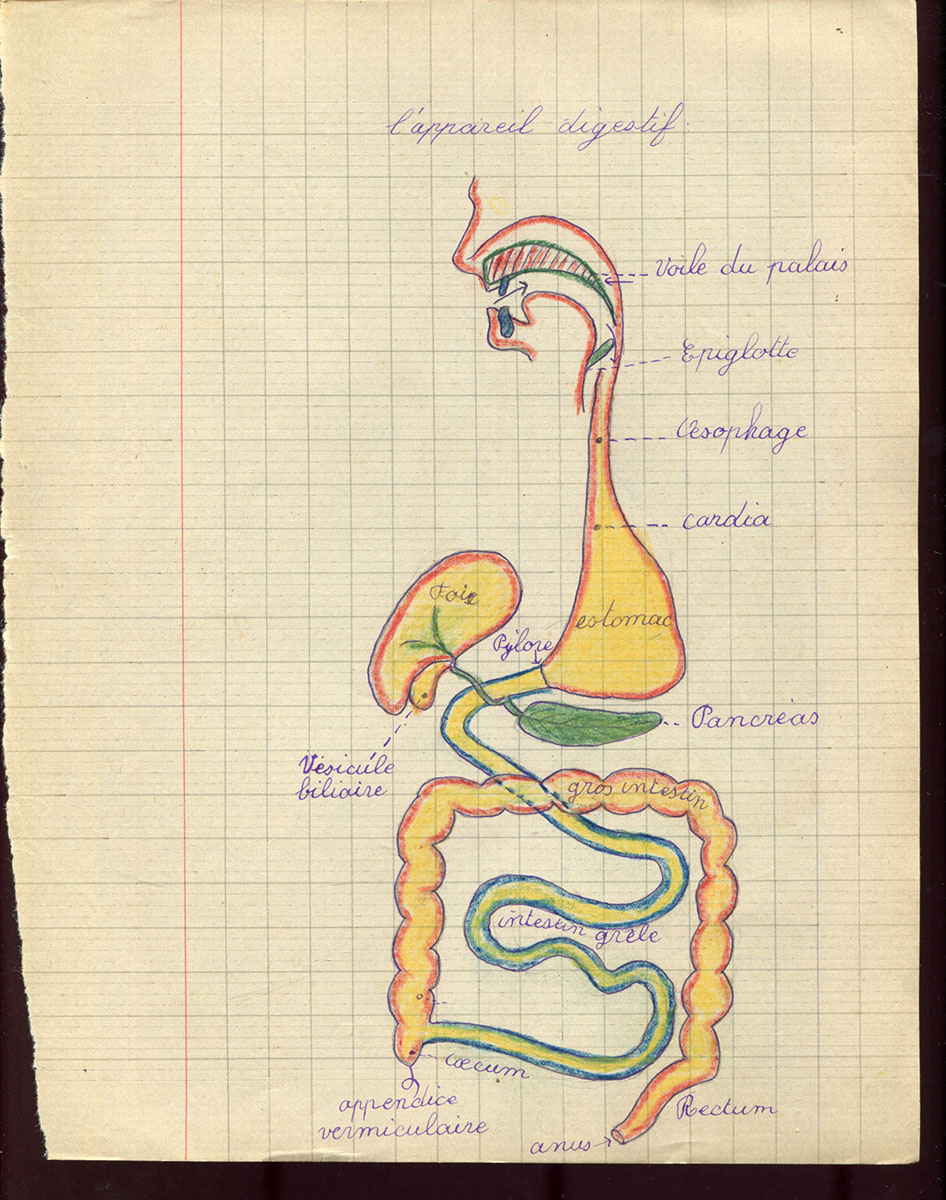 l'appareil digestif
Voile du palais
Epiglotte
Œsophage
cardia
Foie
estomac
Pylore
Pancréas
Vésicule
biliaire
gros intestin
intestin grêle
cœcum
appendice
vermiculaire
Rectum
anus